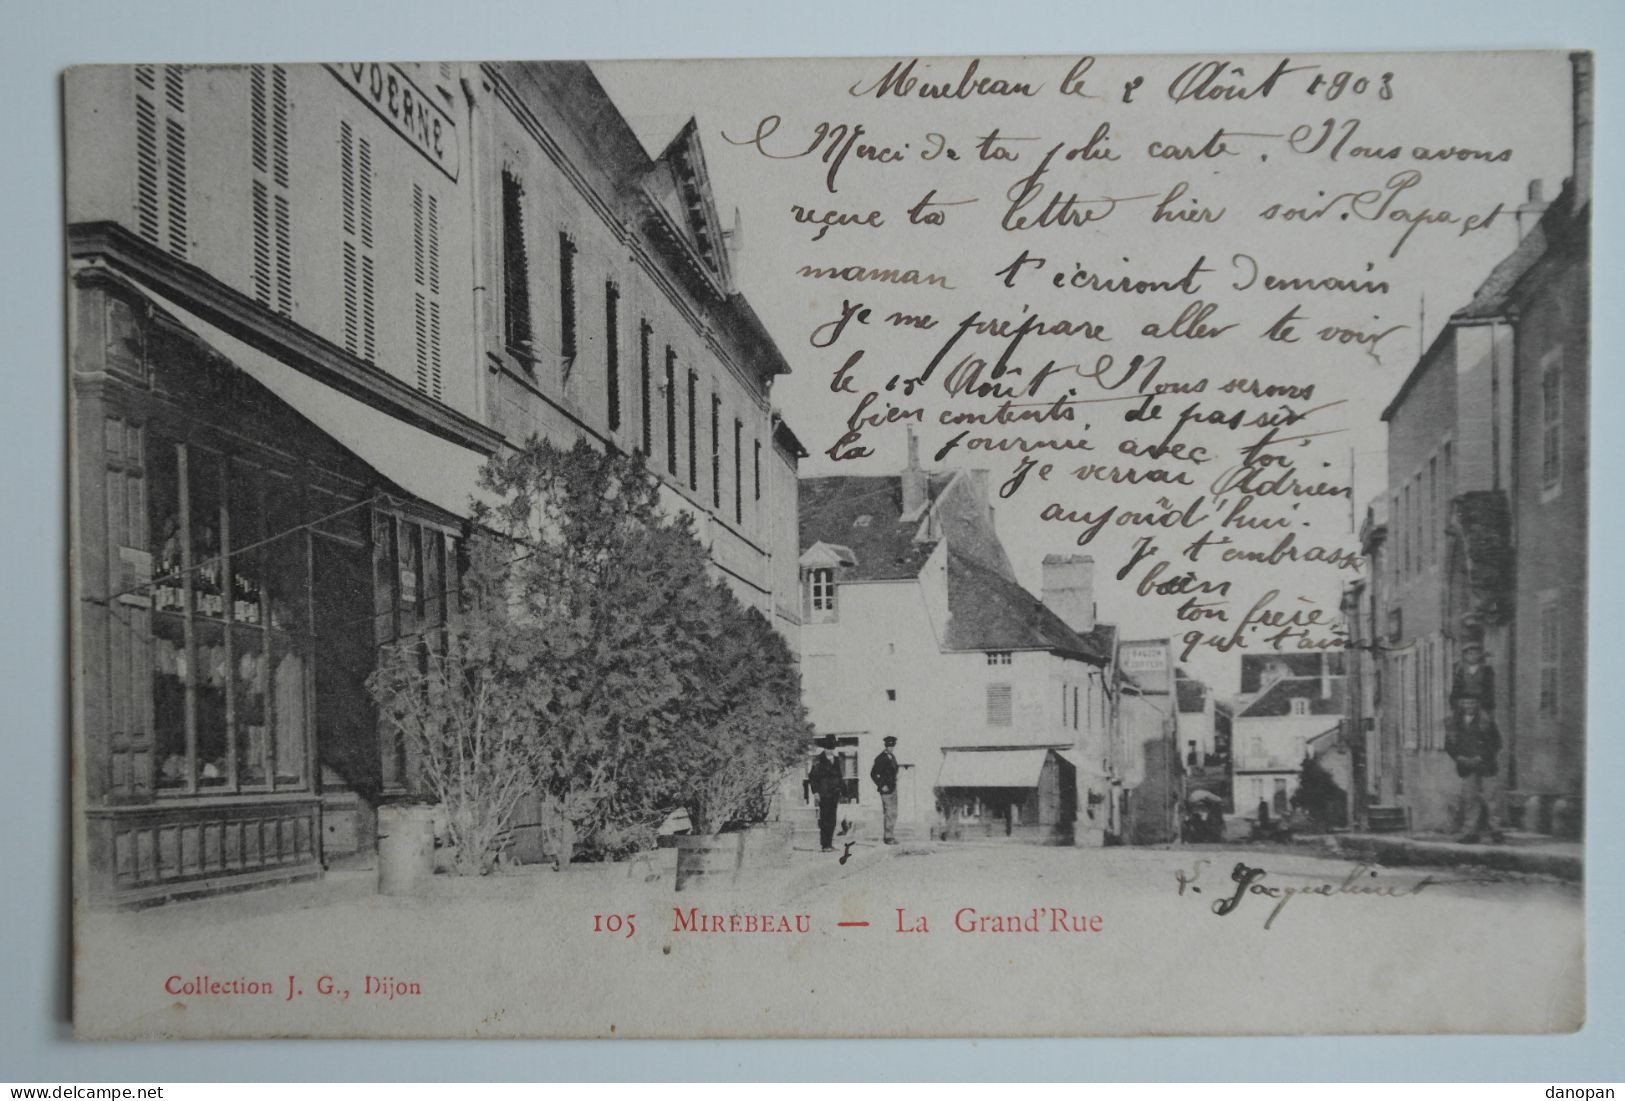 MODERNE
Mirebeau le 2 Août 1903
Merci de ta jolie carte. Nous avons
reçue ta lettre hier soir. Papa et
maman t'écriront demain
Je me prépare aller te voir
le 15 Août. Nous serons
bien contents de passer
la journé avec toi
Je verrai Adrien
aujoûd'hui.
Je t'embrasse
bien
ton frère,
qui t'aime
Jacquelinet
105 MIREBEAU — La Grand'Rue
Collection J. G., Dijon
www.delcampe.net
danopan